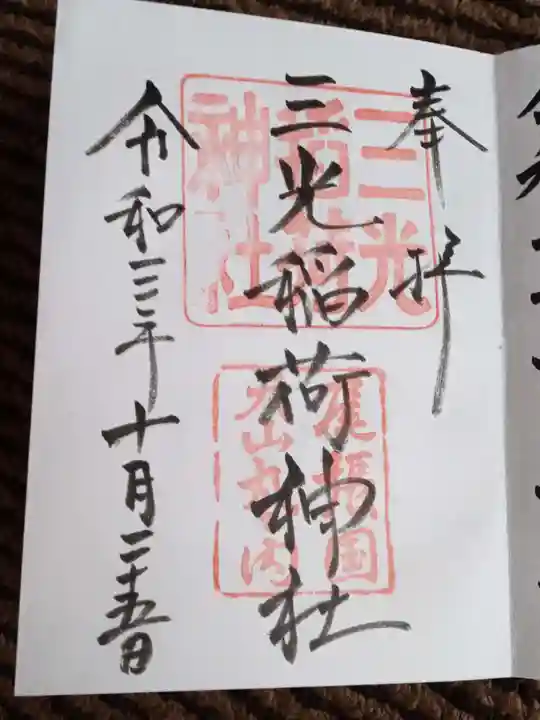 奉拝
三光稲荷神社
令和三年十月二十五日
三光稲荷神社
尾張国犬山丸の内